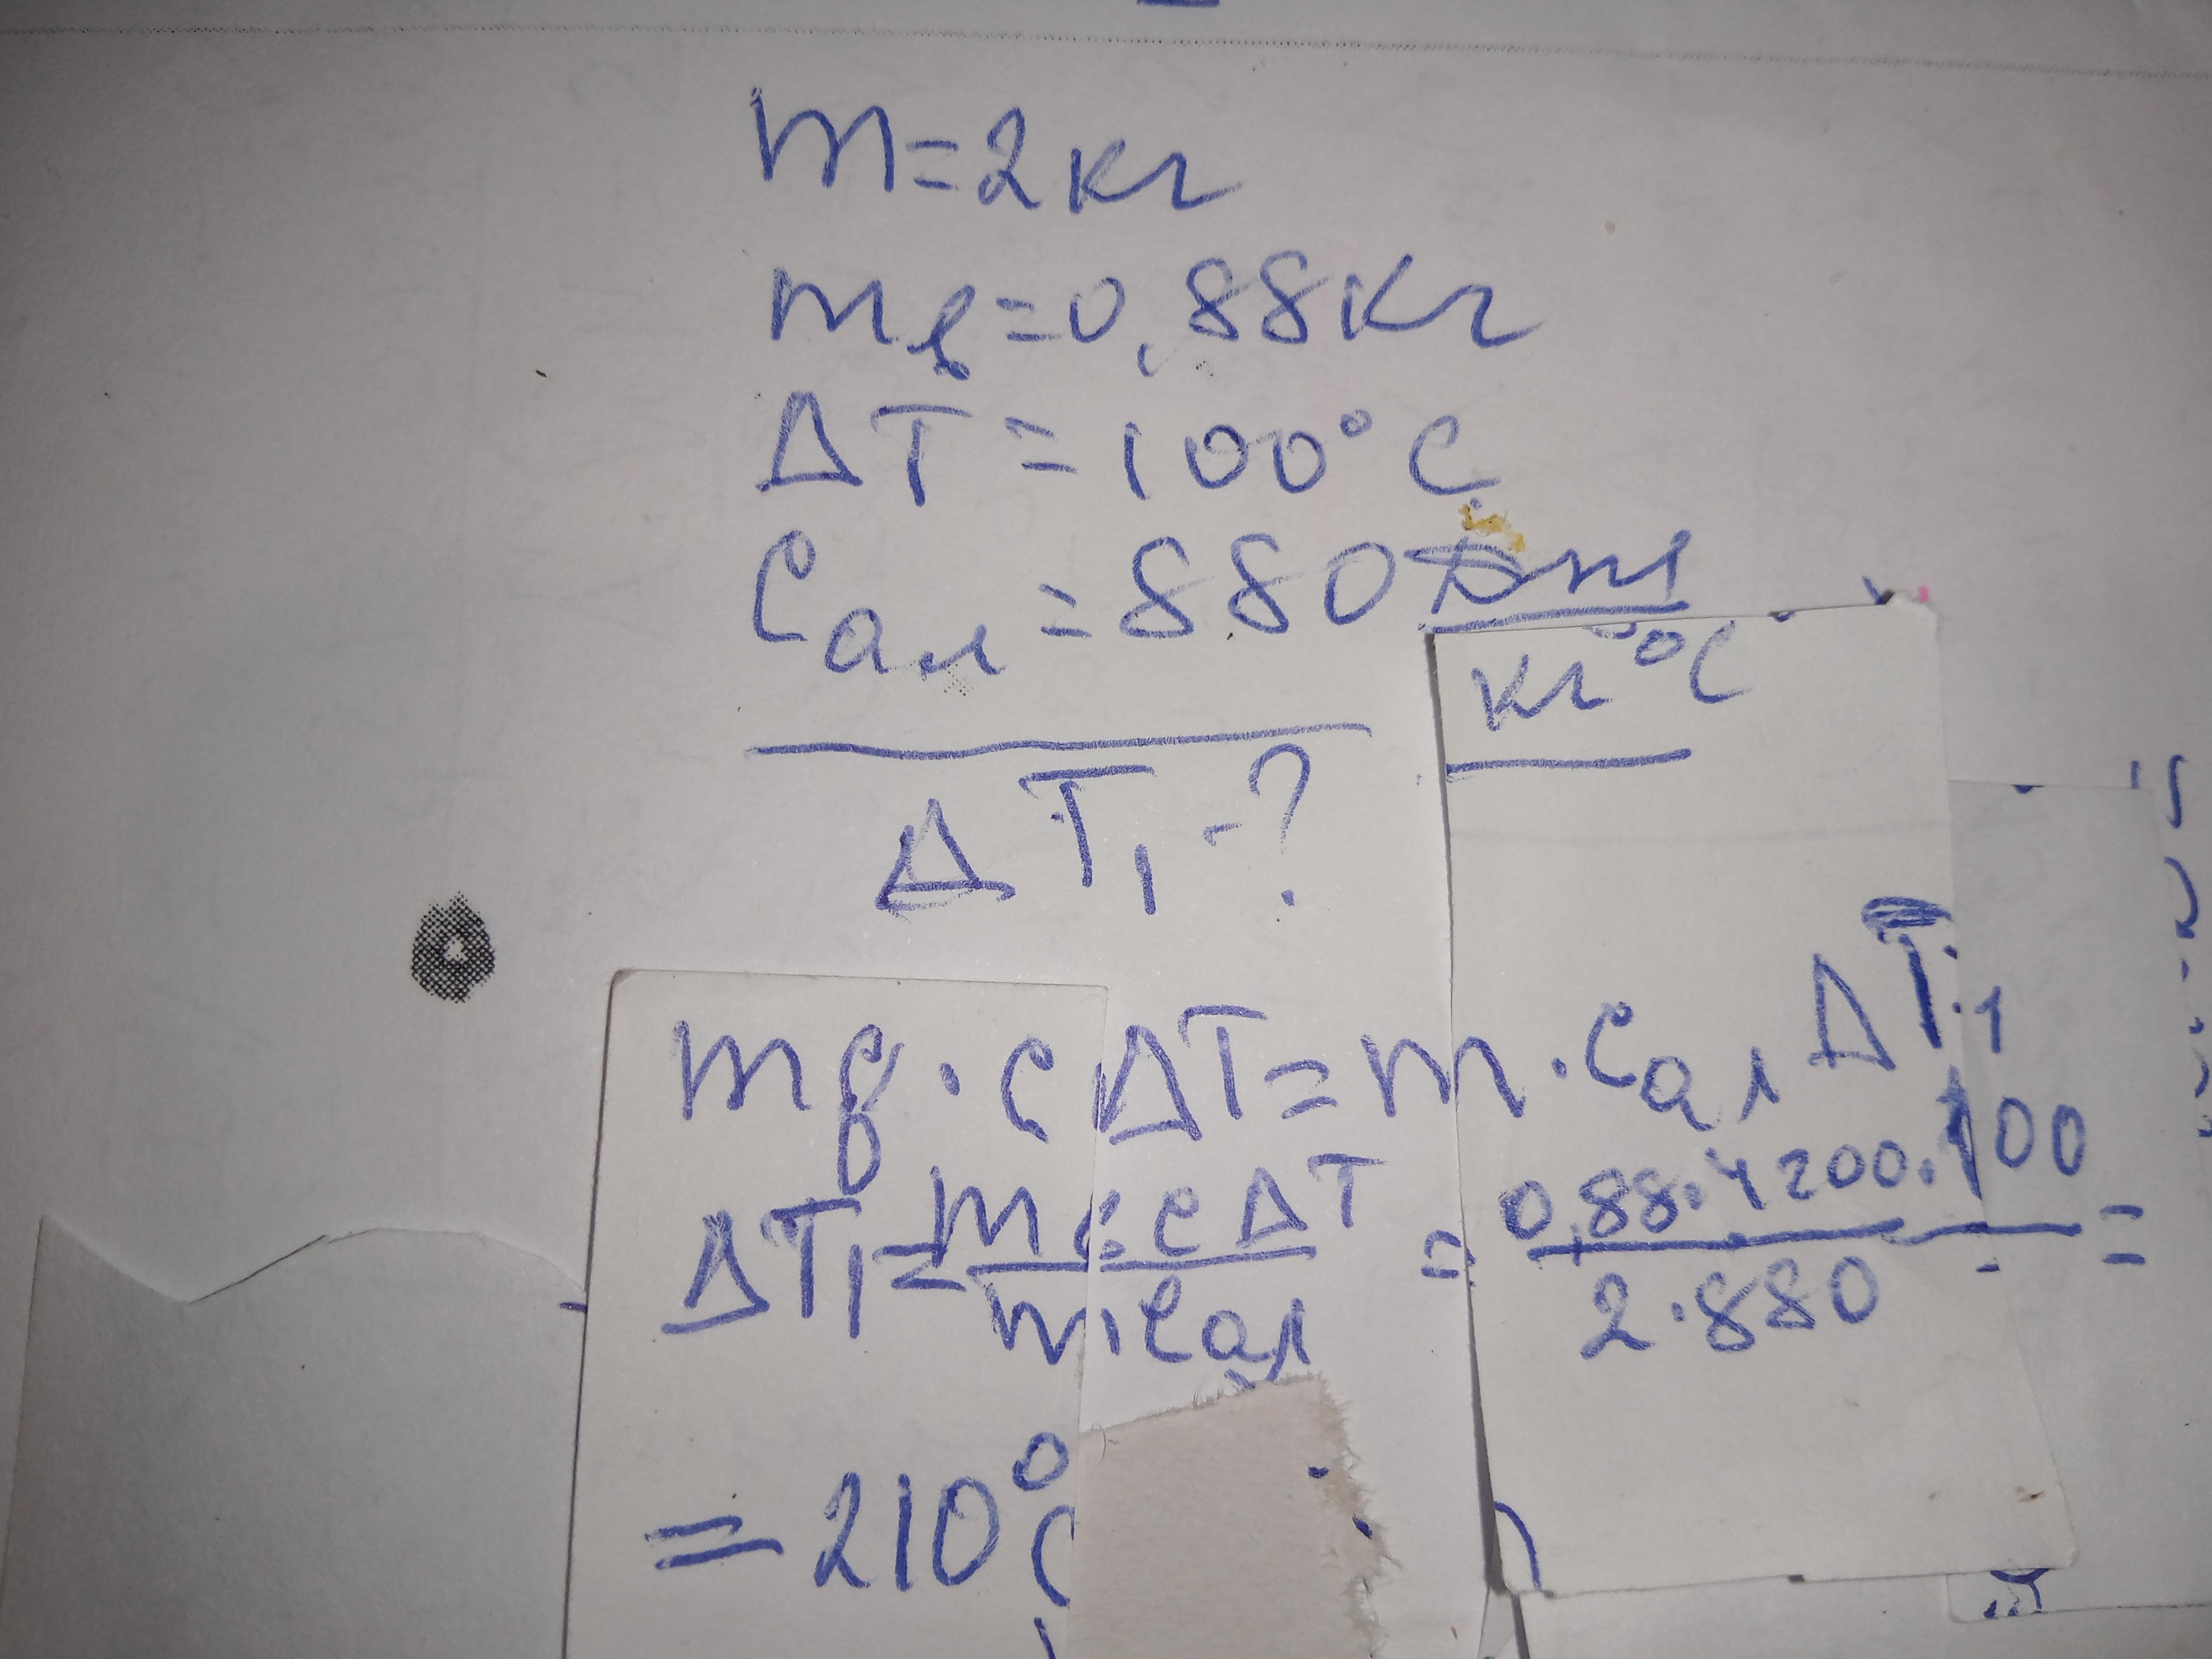 m=2кг
mв=0,88кг
ΔT=100°C
Cал=880 Дж/кг°C
ΔT₁-?
mв·cΔT=m·cалΔT₁
ΔT₁=mвcΔT/mcал = 0,88·4200·100/2·880 =
=210°C